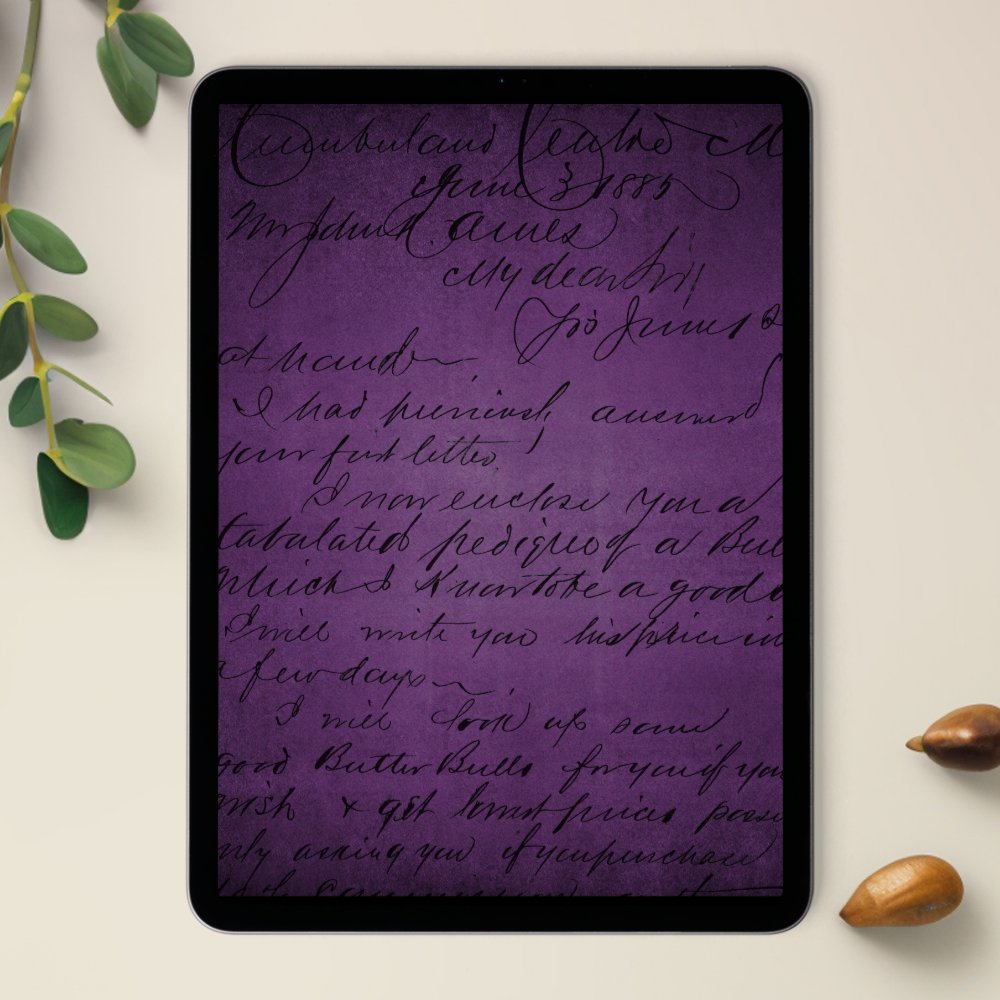 Cumberland Centre M
June 3 1885
Mr John Ames
My dear Sir
Yrs June 1
at hand
I had previously answered
your first letter
I now enclose you a
tabulated pedigree of a Bull
which I Know to be a good
I will write you his price in
a few days
I will look up some
good Butter Bulls for you if you
wish & get lowest prices possi
nly asking you if you purchase